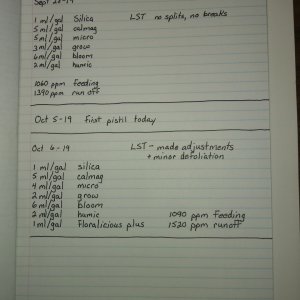 Sept 29-19
1 ml/gal Silica LST no splits, no breaks
5 ml/gal calmag
5 ml/gal micro
3 ml/gal grow
6 ml/gal bloom
2 ml/gal humic
1060 ppm feeding
1390 ppm run off
Oct 5-19 first pistil today
Oct 6-19 LST - made adjustments
+ minor defoliation
1 ml/gal silica
5 ml/gal calmag
4 ml/gal micro
2 ml/gal grow
6 ml/gal bloom
2 ml/gal humic 1090 ppm feeding
1 ml/gal floralicious plus 1520 ppm runoff